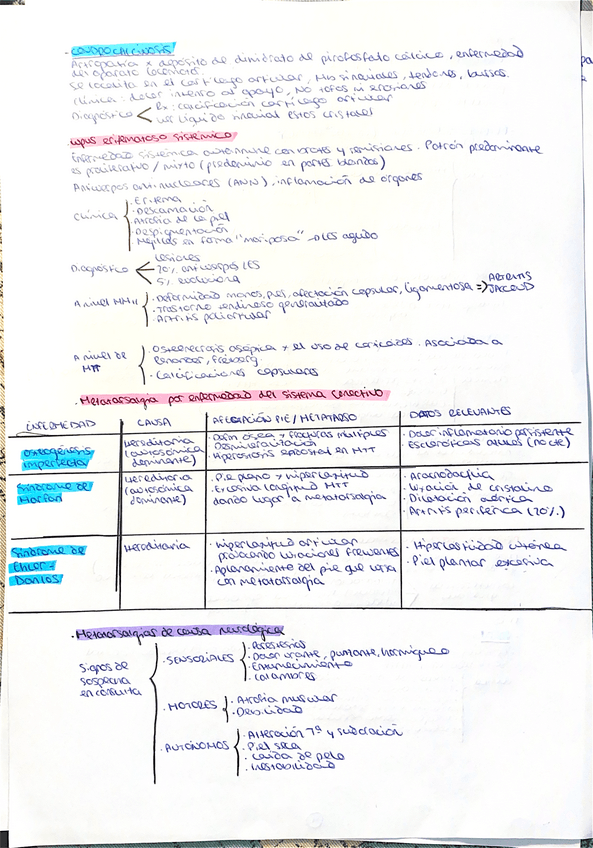 · CONDROCALCINOSIS
Artropatía x depósito de dihidrato de pirofosfato cálcico, enfermedad
del aparato locomotor.
Se localiza en el cartílago articular, mb sinoviales, tendones, bursas.
Clínica: dolor intenso al apoyo, no tofos ni erosiones
Diagnóstico < Rx: calcificación cartílago articular
ver líquido sinovial estos cristales
· Lupus eritematoso sistémico
Enfermedad sistémica autoinmune con brotes y remisiones. Patrón predominante
es proliferativo / mixto (predominio en partes blandas)
Anticuerpos anti-nucleares (ANN), inflamación de órganos
Clínica { · Eritema
· Descamación
· Atrofia de la piel
· Despigmentación
· Mejillas en forma "mariposa" → LES agudo
Diagnóstico < Lesiones
70% anticuerpos LES
5% evoluciona
A nivel { · Deformidad manos, pies, afectación capsular, ligamentosa ⇒ ARTRITIS JACCOUD
· Trastorno tendinoso generalizado
· Artritis poliarticular
A nivel de MTT { · Osteonecrosis aséptica x el uso de corticoides. Asociada a
Renander, Freiberg.
· Calcificaciones capsulares
· Metatarsalgia por enfermedad del sistema conectivo
ENFERMEDAD | CAUSA | AFECTACIÓN PIE / METATARSO | DATOS RELEVANTES
Osteogénesis imperfecta | Hereditaria (autosómica dominante) | · Dism ósea y fracturas múltiples · Desmineralización · Hiperostosis epicostal en MTT | · Dolor inflamatorio persistente · Escleróticas azules (no cte)
Síndrome de Marfan | Hereditaria (autosómica dominante) | · Pie plano x hiperlaxitud · Exceso longitud MTT dando lugar a metatarsalgia | · Aracnodactilia · Luxación de cristalino · Dilatación aórtica · Artritis periférica (70%)
Síndrome de Ehler-Danlos | Hereditaria | · Hiperlaxitud articular provocando luxaciones frecuentes · Aplanamiento del pie que cursa con metatarsalgia | · Hiperlasticidad cutánea · Piel plantar excesiva
· Metatarsalgias de causa neurológica
Signos de sospecha en consulta { · SENSORIALES { · Parestesias
· Dolor urante, punzante, hormigueo
· Entumecimiento
· Calambres
· MOTORES { · Atrofia muscular
· Debilidad
· AUTÓNOMOS { · Alteración Tª y sudoración
· Piel seca
· Caída de pelo
· Inestabilidad